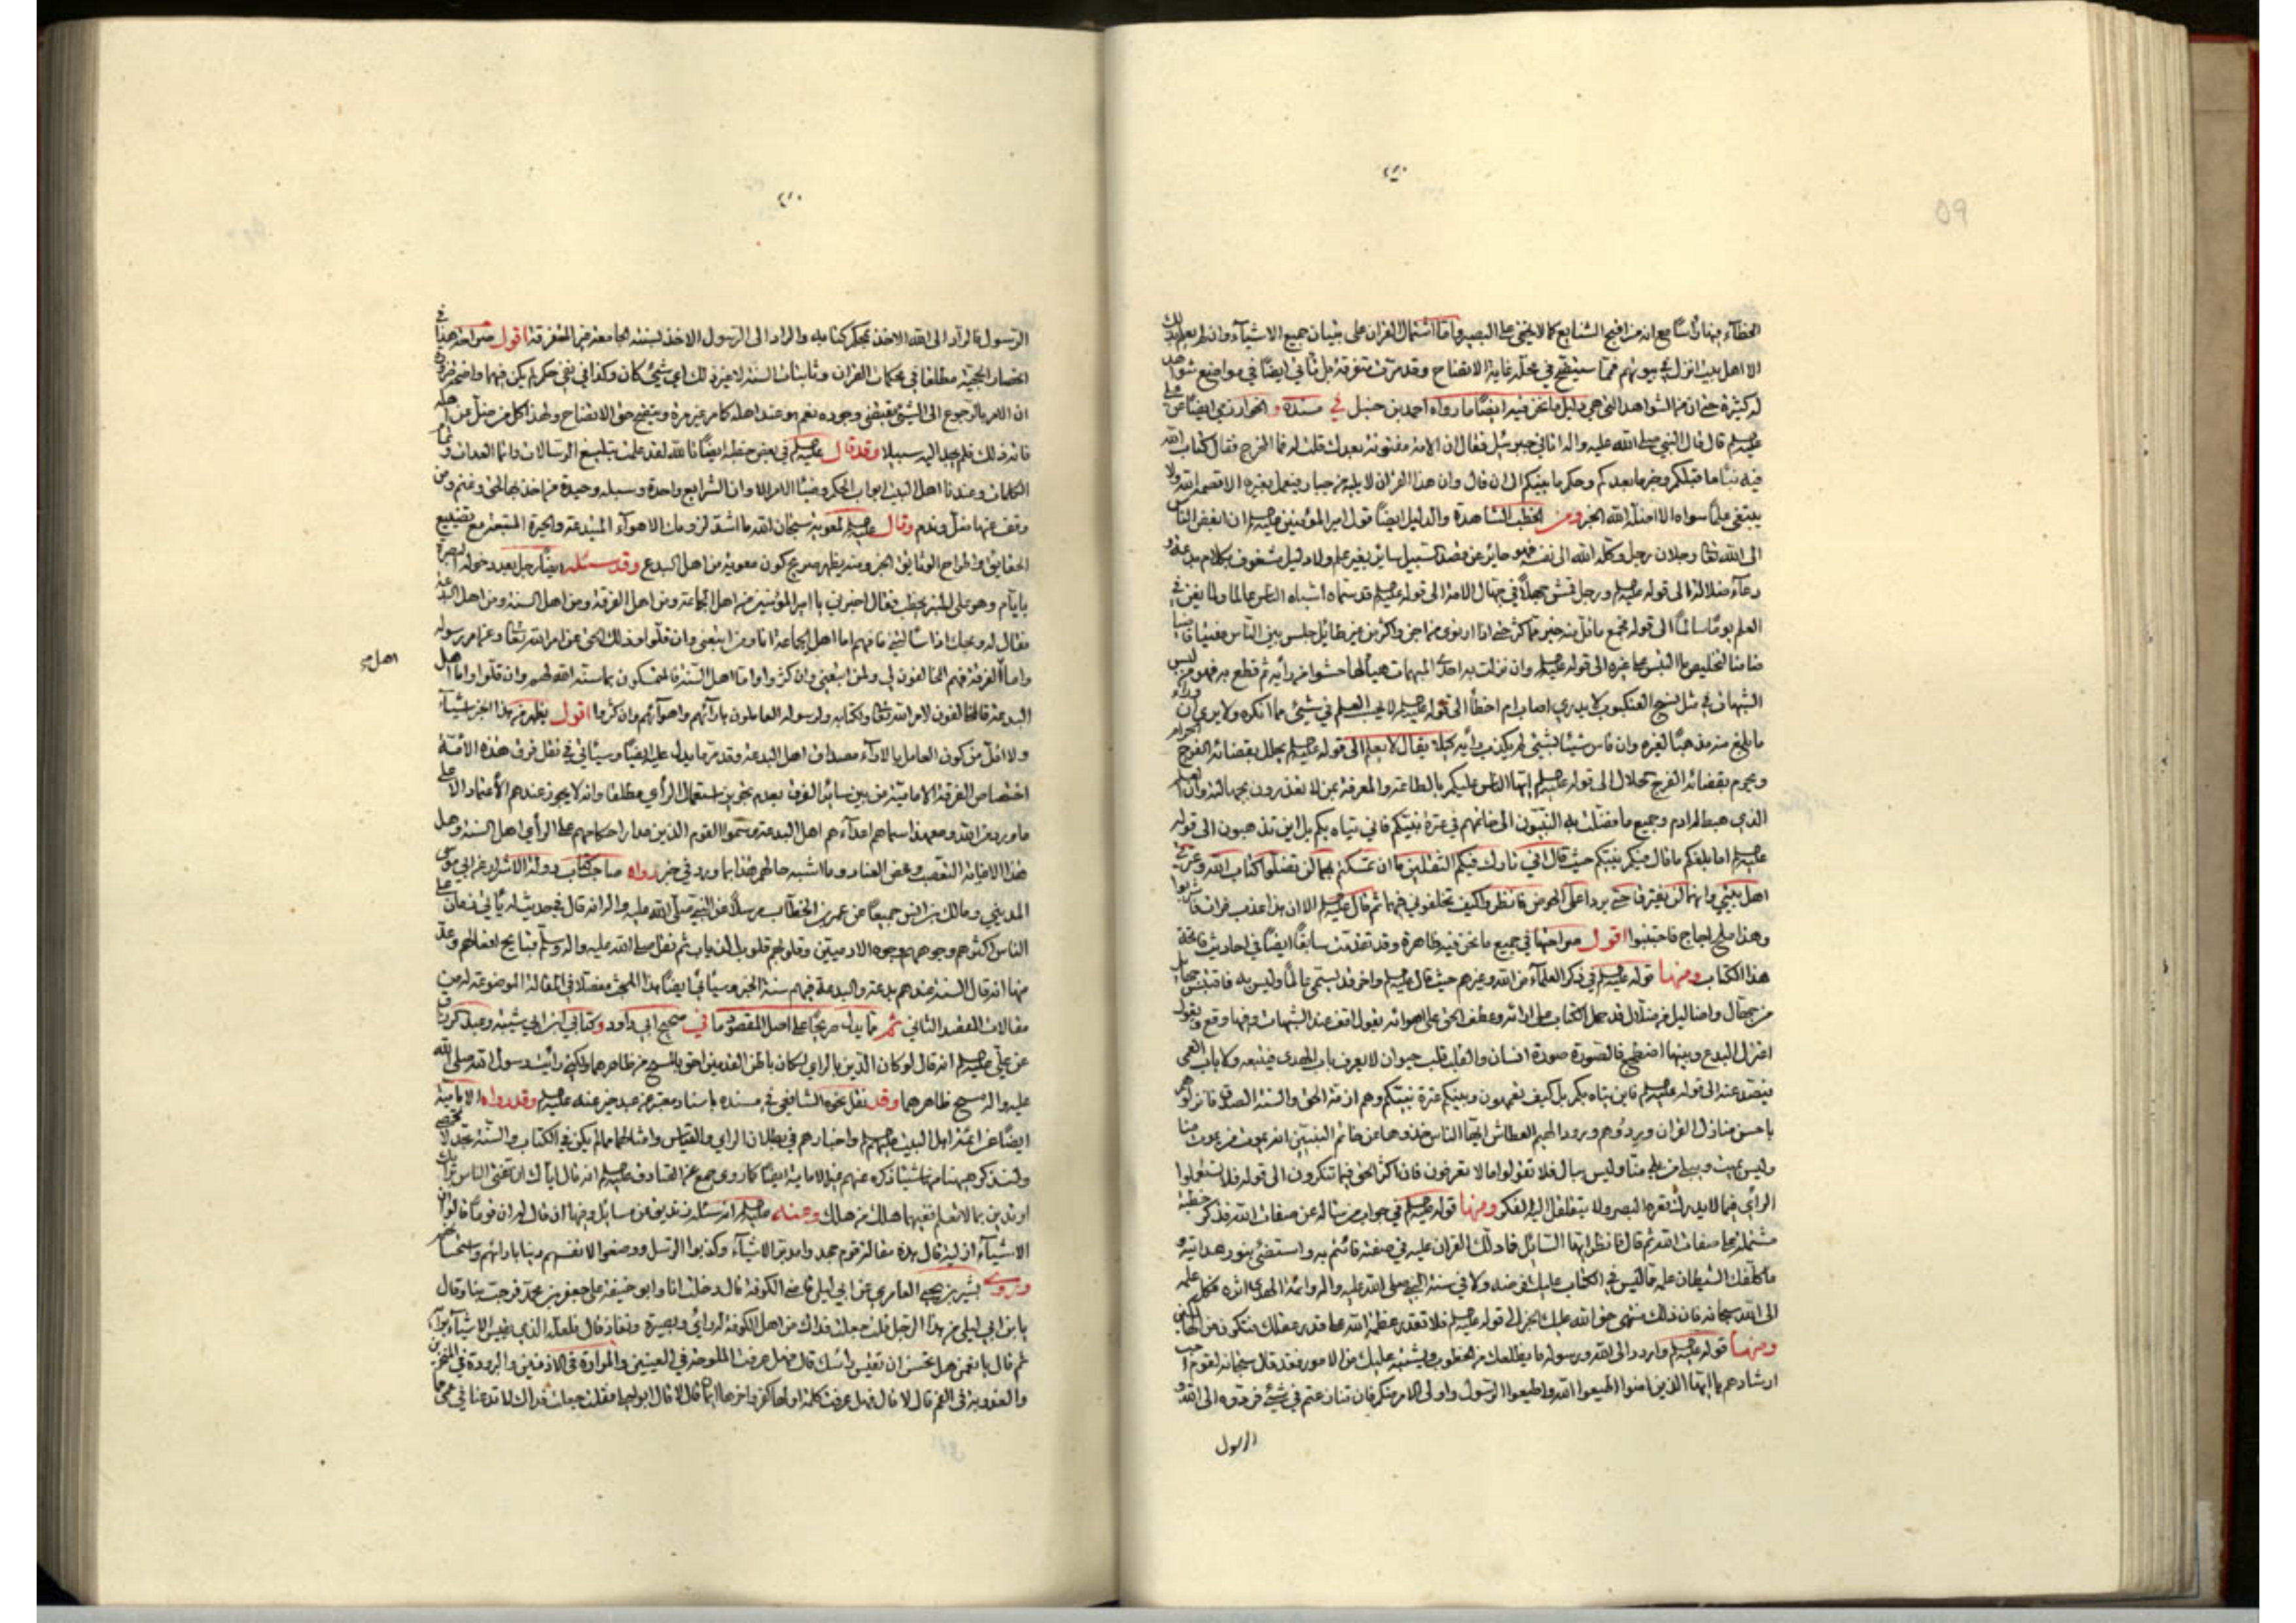 الخطآء فيها رأسا مع انه من اقبح الشنايع كما لا يخفى على البصير واما اشتمال القران على بتيان جميع الاشيآء وان لم يعلم ذلك
الا اهل بيت انزل في بيوتهم فمما سيتضح في محله غاية الاتضاح وقد مرت متفرقة بل تأتي ايضا في مواضع شواهد
له كثيرة حتى ان من الشواهد التي هي دليل ما نحن فيه ايضا ما رواه احمد بن حنبل في مسنده و الخوارزمي ايضا عن علي
عليه السلم قال قال النبي صلى الله عليه واله اتاني جبرئيل فقال ان الامة مفتونة بعدك قلت له فما المخرج فقال كتاب الله
فيه نبأ ما قبلكم وخبر ما بعدكم وحكم ما بينكم الى ان قال وان هذا القران لا يليه من جبار فيعمل بغيره الا قصمه الله ولا
يبتغى علما سواه الا اضله الله الخبر ومن الخطب الشاهدة والدليل ايضا قول امير المؤمنين عليه السلم ان ابغض الناس
الى الله تعا رجلان رجل وكله الله الى نفسه فهو حاير عن قصد السبيل ساير بغير علم ولا دليل مشغوف بكلام بدعة و
دعآء ضلالة الى قوله عليه السلم ورجل قمش جهلا في جهال الامة الى قوله عليه السلم قد سماه اشباه الناس عالما ولما يغن في
العلم يوما سالما الى قوله فجمع ما قل منه خير مما كثر حتى اذا ارتوى من اجن واكثر من غير طايل جلس بين الناس مفتيا قاضيا
ضامنا لتخليص ما التبس على غيره الى قوله عليه السلم وان نزلت به احدى المبهمات هيأ لها حشوا من رأيه ثم قطع به فهو من لبس
الشبهات في مثل نسج العنكبوت لا يدري اصاب ام اخطأ الى قوله عليه السلم لا يحسب العلم في شيئ مما انكره ولا يرى ان ورآء
ما بلغ منه مذهبا لغيره وان قاس شيئا بشيئ لم يكذب رأيه كيلا يقال لا يعلم الى قوله عليه السلم يحلل بقضائه الفرج الحرام
ويحرم بقضائه الفرج الحلال الى قوله عليه السلم ايها الناس عليكم بالطاعة والمعرفة بمن لا تعذرون بجهالته وان العلم
الذي هبط به ادم وجميع ما فضلت به النبيون الى خاتمهم في عترة نبيكم فاني يتاه بكم بل اين تذهبون الى قوله
عليه السلم اما بلغكم ما قال فيكم نبيكم حيث قال اني تارك فيكم الثقلين ما ان تمسكتم بهما لن تضلوا كتاب الله وعترتي
اهل بيتي وانهما لن يفترقا حتى يردا على الحوض فانظروا كيف تخلفوني فيهما ثم قال عليه السلم الا ان هذا عذب فرات فاشربوا
وهذا ملح اجاج فاجتنبوا اقول صراحتها في جميع ما نحن فيه ظاهرة وقد تقدمت سابقا ايضا في احاديث فاتحة
هذا الكتاب ومنها قوله عليه السلم في ذكر العلمآء من الله وغيرهم حيث قال عليه السلم واخر قد يسمى عالما وليس به فاقتبس جهايل
من جهال واضاليل من ضلال قد حمل الكتاب على ارائه وعطف الحق على اهوائه يقول اقف عند الشبهات وفيها وقع ويقول
اعتزل البدع وبينها اضطجع فالصورة صورة انسان والقلب قلب حيوان لا يعرف باب الهدى فيتبعه ولا باب العمى
فيصد عنه الى قوله عليه السلم فاين يتاه بكم بل كيف تعمهون وبينكم عترة نبيكم وهم ازمة الحق والسنة الصدق فانزلوهم
باحسن منازل القران وردوهم ورود الهيم العطاش ايها الناس خذوها عن خاتم النبيين انه يموت من يموت منا
وليس بميت ويبلى من بلي منا وليس ببال فلا تقولوا ما لا تعرفون فان اكثر الحق فيما تنكرون الى قوله فلا تستعملوا
الرأي فيما لا يدرك قعره البصر ولا يتغلغل اليه الفكر ومنها قوله عليه السلم في جواب من سأله عن صفات الله فذكر خطبة
مشتملة على صفات الله ثم قال فانظر ايها السائل فما دلك القران عليه في صفته فائتم به واستضئ بنور هدايته و
ما كلفك الشيطان علمه مما ليس في الكتاب عليك فرضه ولا في سنة النبي صلى الله عليه واله وائمة الهدى اثره فكل علمه
الى الله سبحانه فان ذلك منتهى حق الله عليك الخبر الى قوله عليه السلم فلا تقدر عظمة الله على قدر عقلك فتكون من الهالكين
ومنها قوله عليه السلم واردد الى الله ورسوله ما يظلعك من الخطوب ويشتبه عليك من الامور فقد قال سبحانه لقوم احب
ارشادهم يا ايها الذين امنوا اطيعوا الله واطيعوا الرسول واولى الامر منكم فان تنازعتم في شيئ فردوه الى الله و
الرسول
الرسول فالراد الى الله الاخذ بمحكم كتابه والراد الى الرسول الاخذ بسنته الجامعة غير المتفرقة اقول صراحة هذا في
انحصار الحجية مطلقا في محكمات القران وثابتات السنة لا غير ذلك اي شيئ كان وكذا في نفي حكم لم يكن فيهما واضحة ضرورة
ان الامر بالرجوع الى الشيئ يقتضى وجوده نعم هو عند اهله كما مر غير مرة ويتضح حق الاتضاح ولهذا كل من ضل عن اهله
فاته ذلك فلم يجد اليه سبيلا وقد قال عليه السلم في بعض خطبه ايضا تالله لقد علمت تبليغ الرسالات واتمام العدات وتمام
الكلمات وعندنا اهل البيت ابواب الحكم وضيآء الامر الا وان الشرايع واحدة وسبله وحيدة من اخذ بها لحق وغنم ومن
وقف عنها ضل وندم وقال عليه السلم لمعوية سبحان الله ما اشد لزومك الاهوآء المبتدعة والحيرة المتبعة مع تضييع
الحقايق واطراح الوثايق الخبر ومنه يظهر صريح كون معوية من اهل البدع وقد سئله ايضا رجل بعد دخوله البصرة
بايام وهو على المنبر يخطب فقال اخبرني يا امير المؤمنين من اهل الجماعة ومن اهل الفرقة ومن اهل السنة ومن اهل البدعة
فقال له ويحك اذا سألتني فافهم اما اهل الجماعة انا ومن اتبعني وان قلوا وذلك الحق عن امر الله تعا وعن امر رسوله
واما الفرقة فهم المخالفون لي ولمن اتبعني وان كثروا واما اهل السنة فالمتمسكون بما سنه الله لهم وان قلوا واما اهل
اهل
البدعة فالمخالفون لامر الله تعا وكتابه ورسوله العاملون بارآئهم واهوآئهم وان كثروا اقول يظهر من هذا الخبر اشيآء
ولا اقل من كون العامل بالارآء مصداق اهل البدعة وقد مر ما يدل عليه ايضا وسيأتي في نقل فرق هذه الامة
اختصاص الفرقة الامامية من بين سائر الفرق بعدم تجويز استعمال الرأي مطلقا وانه لا يجوز عندهم الاعتماد الا على
ما ورد من الله ومع هذا سماهم اعدآءهم اهل البدعة وسموا القوم الذين مدار احكامهم على الرأي اهل السنة وهل
هذا الا غاية التعصب ومحض العناد وما اشبه حالهم هذا بما ورد في خبر رواه صاحب كتاب دولة الاشرار عن ابي موسى
المديني ومالك بن انس جميعا عن عمر بن الخطاب مرسلا عن النبي صلى الله عليه واله انه قال في حديث له يأتي زمان على
الناس اكثرهم وجوههم وجوه الادميين وقلوبهم قلوب الذياب ثم نقل صلى الله عليه واله وسلم قبايح افعالهم وعد
منها انه قال السنة عندهم بدعة والبدعة فيهم سنة الخبر وسيأتي ايضا هذا المبحث مفصلا في المقالة الموضوعة له من
مقالات المقصد الثاني ثم مما يدل صريحا على اصل المقصود ما في صحيح ابي داود وكتابي ابن ابي شيبة وعبد الرزاق
عن علي عليه السلم انه قال لو كان الدين بالراي لكان باطن القدمين احق بالمسح من ظاهرهما ولكني رأيت رسول الله صلى الله
عليه واله مسح ظاهرهما وقد نقل نحوه الشافعي في مسنده باسناد معتبر عن عبد خير عنه عليه السلم وقد رواه الامامية
ايضا عن ائمة اهل البيت عليهم السلم واخبارهم في بطلان الراي والقياس وامثالهما مما لم يكن في الكتاب والسنة بحد لا تحصى
ولنذكر هيهنا منها شيئا ذكره عنهم غير الامامية ايضا كما روى جمع عن الصادق عليه السلم انه قال اياك ان تفتى الناس برأيك
او تدين بما لا تعلم ففيهما هلك من هلك وعنه عليه السلم انه سئله زنديق عن مسائل ومنها ان قال له ان قوما قالوا ان
الاشيآء ازلية قال هذه مقالة قوم جحدوا مدبر الاشيآء وكذبوا الرسل ووضعوا لانفسهم دينا بارائهم واستحسانهم
وروى بشير بن يحيى العامري عن ابن ابي ليلى قاضي الكوفة قال دخلت انا وابو حنيفة على جعفر بن محمد فرحب بنا وقال
يابن ابي ليلى من هذا الرجل قلت جعلت فداك من اهل الكوفة له رأي وبصيرة ونفاذ قال فلعله الذي يقيس الاشيآء برأيه
ثم قال يا نعمن هل تحسن ان تقيس رأسك قال لا قال فهل عرفت الملوحة في العينين والمرارة في الاذنين والبرودة في المنخرين
والعذوبة في الفم قال لا قال فهل عرفت كلمة اولها كفر واخرها ايمان قال لا قال ابن ابي ليلى فقلت جعلت فداك لا تدعنا في عمى